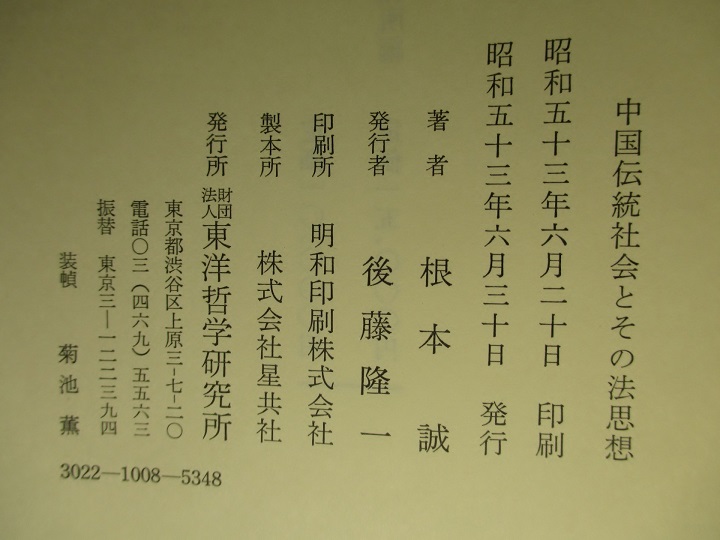 中国伝統社会とその法思想
昭和五十三年六月二十日 印刷
昭和五十三年六月三十日 発行
著者 根本誠
発行者 後藤隆一
印刷所 明和印刷株式会社
製本所 株式会社星共社
発行所 財団法人東洋哲学研究所
東京都渋谷区上原三-七-二〇
電話〇三(四六九)五五六三
振替 東京三—一二二三九四
装幀 菊池薫
3022—1008—5348